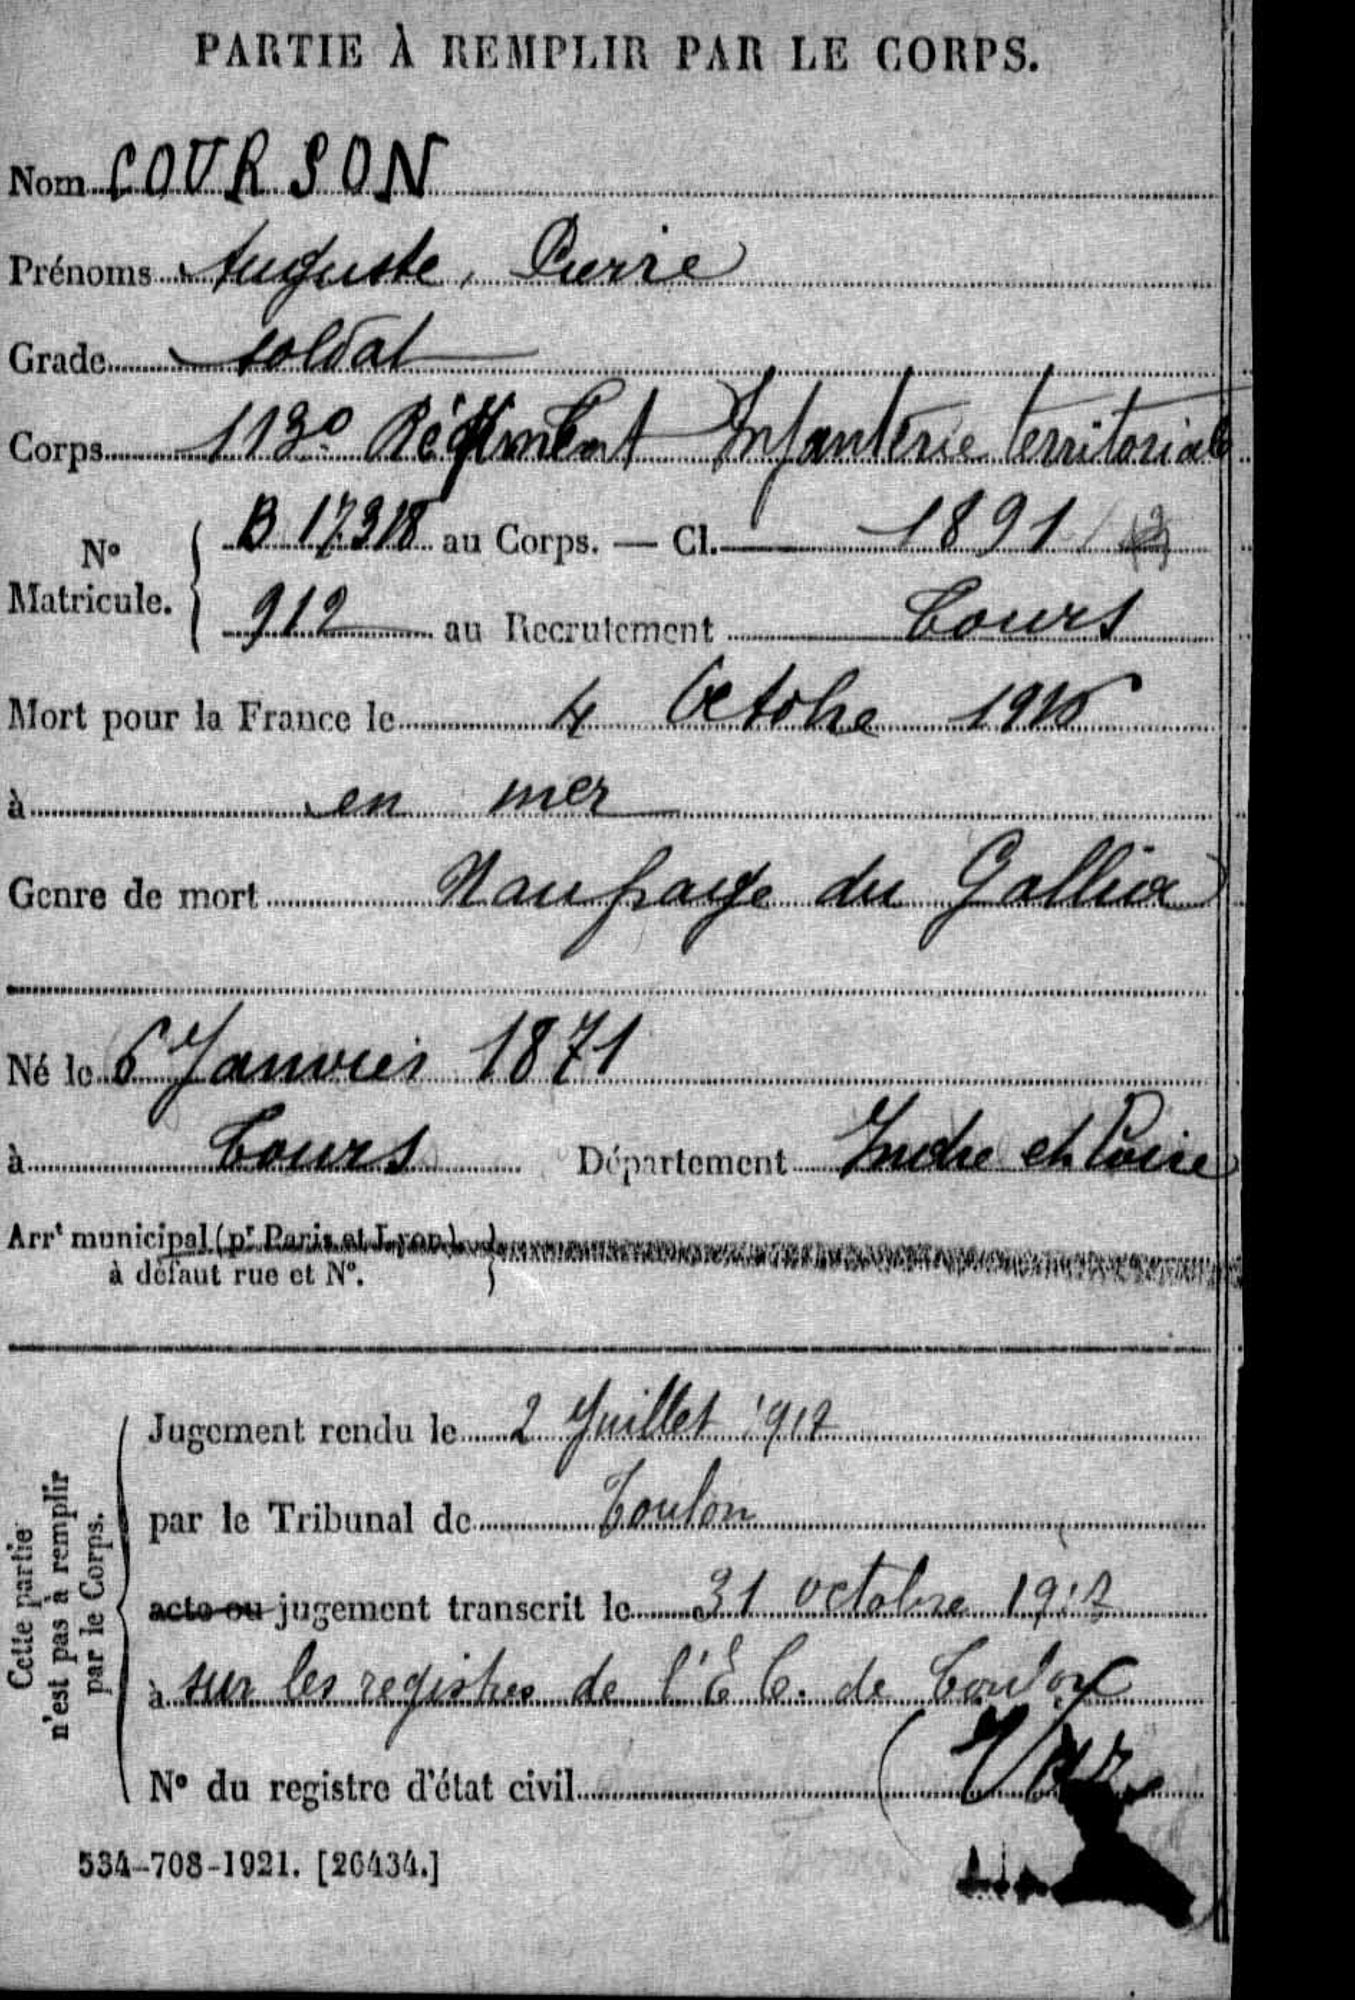 PARTIE À REMPLIR PAR LE CORPS.
Nom COURSON
Prénoms Auguste, Pierre
Grade soldat
Corps 113e Régiment Infanterie territoriale
No Matricule. B 17318 au Corps. — Cl. 1891
912 au Recrutement Tours
Mort pour la France le 4 Octobre 1916
à en mer
Genre de mort Naufrage du Gallia
Né le 6 Janvier 1871
à Tours Département Indre et Loire
Arrt municipal (pr Paris et Lyon),
à défaut rue et No.
Cette partie n'est pas à remplir par le Corps.
Jugement rendu le 2 Juillet 1917
par le Tribunal de Toulon
acte ou jugement transcrit le 31 octobre 1917
à sur les registres de l'E C. de Toulon
No du registre d'état civil (Var
534-708-1921. [26434.]